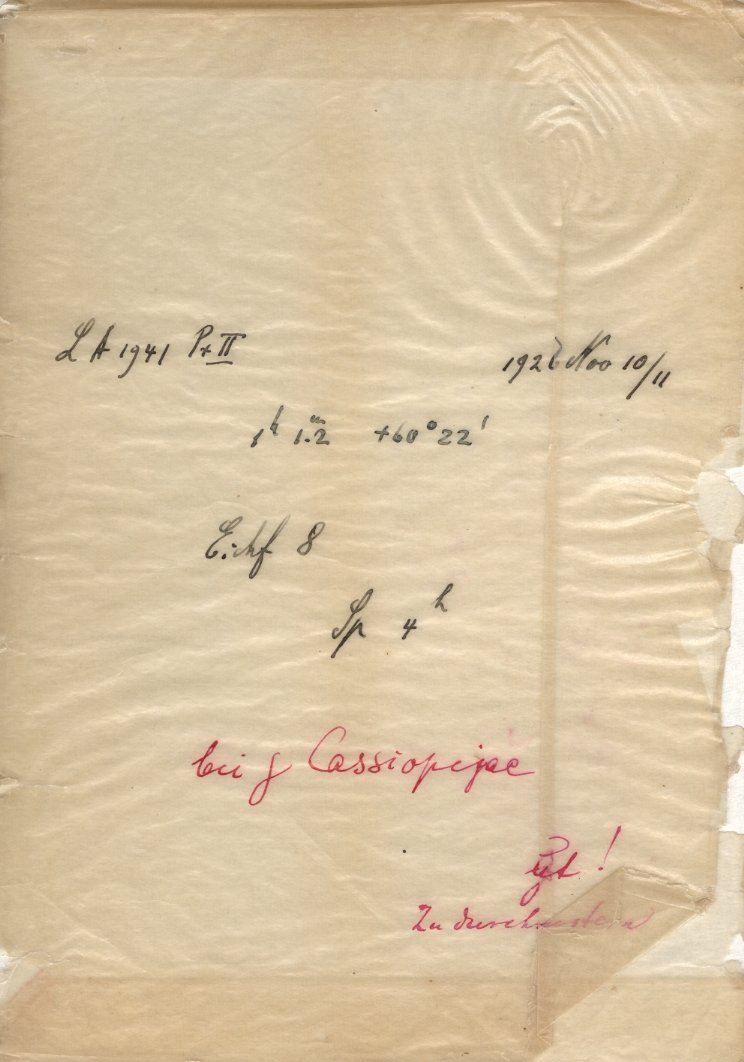 L A 1941 Pr II
1926 Nov 10/11
1ʰ 1.ᵐ2 +60° 22'
Eichf 8
Sp 4ʰ
bei γ Cassiopejae
!
Zu durchmustern